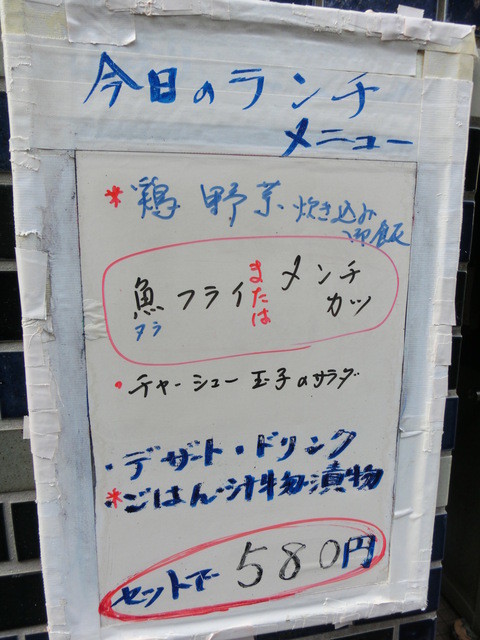 今日のランチ
メニュー
*鶏 野菜 炊き込み
御飯
魚フライ または メンチ
カツ
タラ
・チャーシュー玉子のサラダ
・デザート・ドリンク
*ごはん・汁物・漬物
セットで 580円